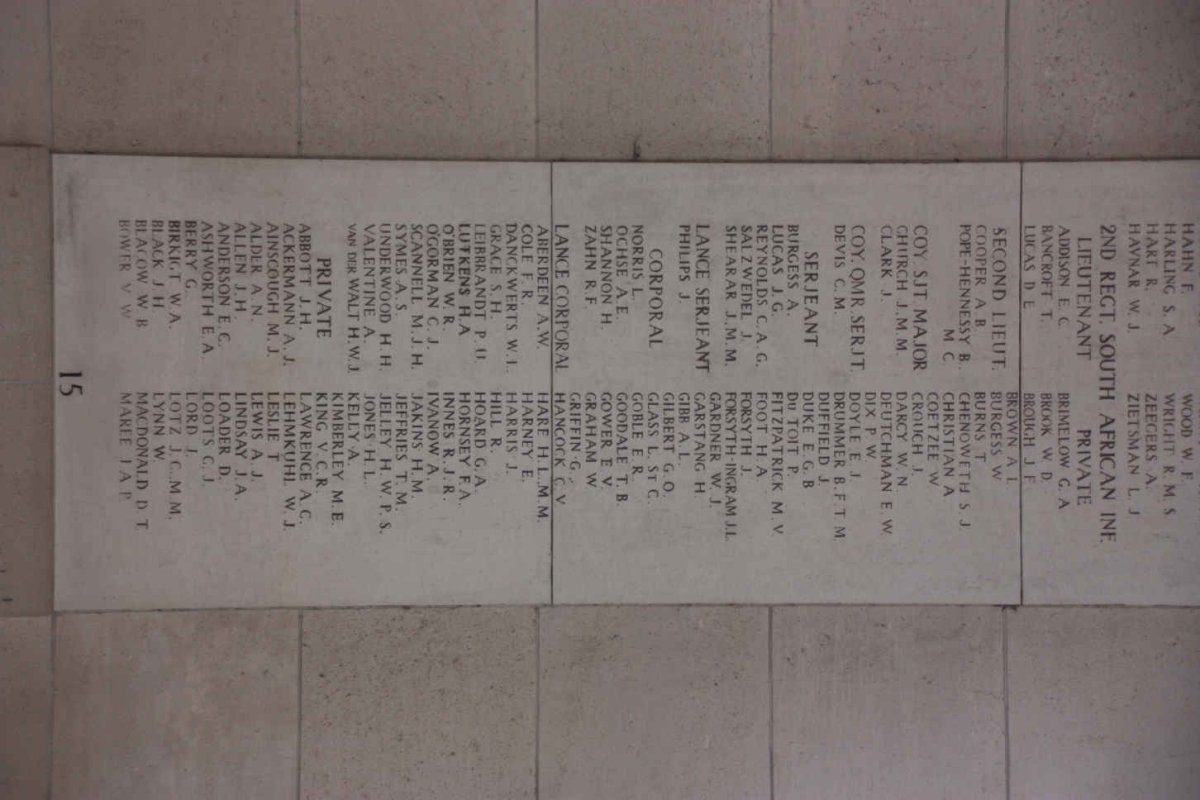 HAHN F.
HARLING S. A.
HART R.
HAYNAR W. J.
WOOD W. F.
WRIGHT R. M. S.
ZEEGERS A.
ZIETSMAN L. J.
2ND REGT. SOUTH AFRICAN INF.
LIEUTENANT
ADDISON E. C.
BANCROFT T.
LUCAS D. L.
SECOND LIEUT.
COOPER A. B.
POPE-HENNESSY B.
M. C.
COY SJT MAJOR
CHURCH J. M. M.
CLARK J.
COY. QMR. SERJT
DEVIS C. M.
SERJEANT
BURGESS A.
LUCAS J. G.
REYNOLDS C. A. G.
SALZWEDEL J.
SHEARAR J. M. M.
LANCE SERJEANT
PHILIPS J.
CORPORAL
NORRIS L.
OCHSE A. E.
SHANNON H.
ZAHN R. F.
LANCE CORPORAL
ABERDEEN A. W.
COLE F. R.
DANCKWERTS W. I.
GRACE S. H.
LEIBBRANDT P. H.
LUYKENS H. A.
O'BRIEN W. R.
O'GORMAN C. J.
SCANNELL M. J. H.
SYMES A. S.
UNDERWOOD H. H.
VALENTINE A.
VAN DER WALT H. W. J.
PRIVATE
ABBOTT J. H.
ACKERMANN A. J.
AINSCOUGH M. J.
ALDER A. N.
ALLEN J. H.
ANDERSON E. C.
ASHWORTH E. A.
BERRY G.
BIRKIGT W. A.
BLACK J. H.
BLACOW W. B.
BOWER V. W.
PRIVATE
BRIMELOW G. A.
BROOK W. D.
BROUGH J. F.
BROWN A. L.
BURGESS W.
BURNS T.
CHENOWETH S. J.
CHRISTIAN A.
COETZEE W.
CROUCH J.
DARCY W. N.
DEUTCHMAN E. W.
DIX P. W.
DOYLE E. J.
DRUMMER B. F. T. M.
DUFFIELD J.
DUKE E. G. B.
DU TOIT P.
FITZPATRICK M. V.
FOOT H. A.
FORSYTH J.
FORSYTH-INGRAM J. L.
GARDNER W. J.
GARSTANG H.
GIBB A. L.
GILBERT G. O.
GLASS L. ST C.
GOBLE E. R.
GOODALE T. B.
GOWER E. V.
GRAHAM W.
GRIFFIN G.
HANCOCK C. V.
HARE H. L. M. M.
HARNEY E.
HARRIS J.
HILL R.
HOARD G. A.
HORNSEY F. A.
INNES R. J. R.
IVANOW A.
JAKINS H. M.
JEFFRIES T. M.
JELLEY H. W. P. S.
JONES H. L.
KELLY A.
KIMBERLEY M. E.
KING V. C. R.
LAWRENCE A. C.
LEHMKUHL W. J.
LESLIE T.
LEWIS A. J.
LINDSAY J. A.
LOADER D.
LOOTS C. J.
LORD J.
LOTZ J. C. M. M.
LYNN W.
MACDONALD D. T.
MAKEE J. A. P.
15